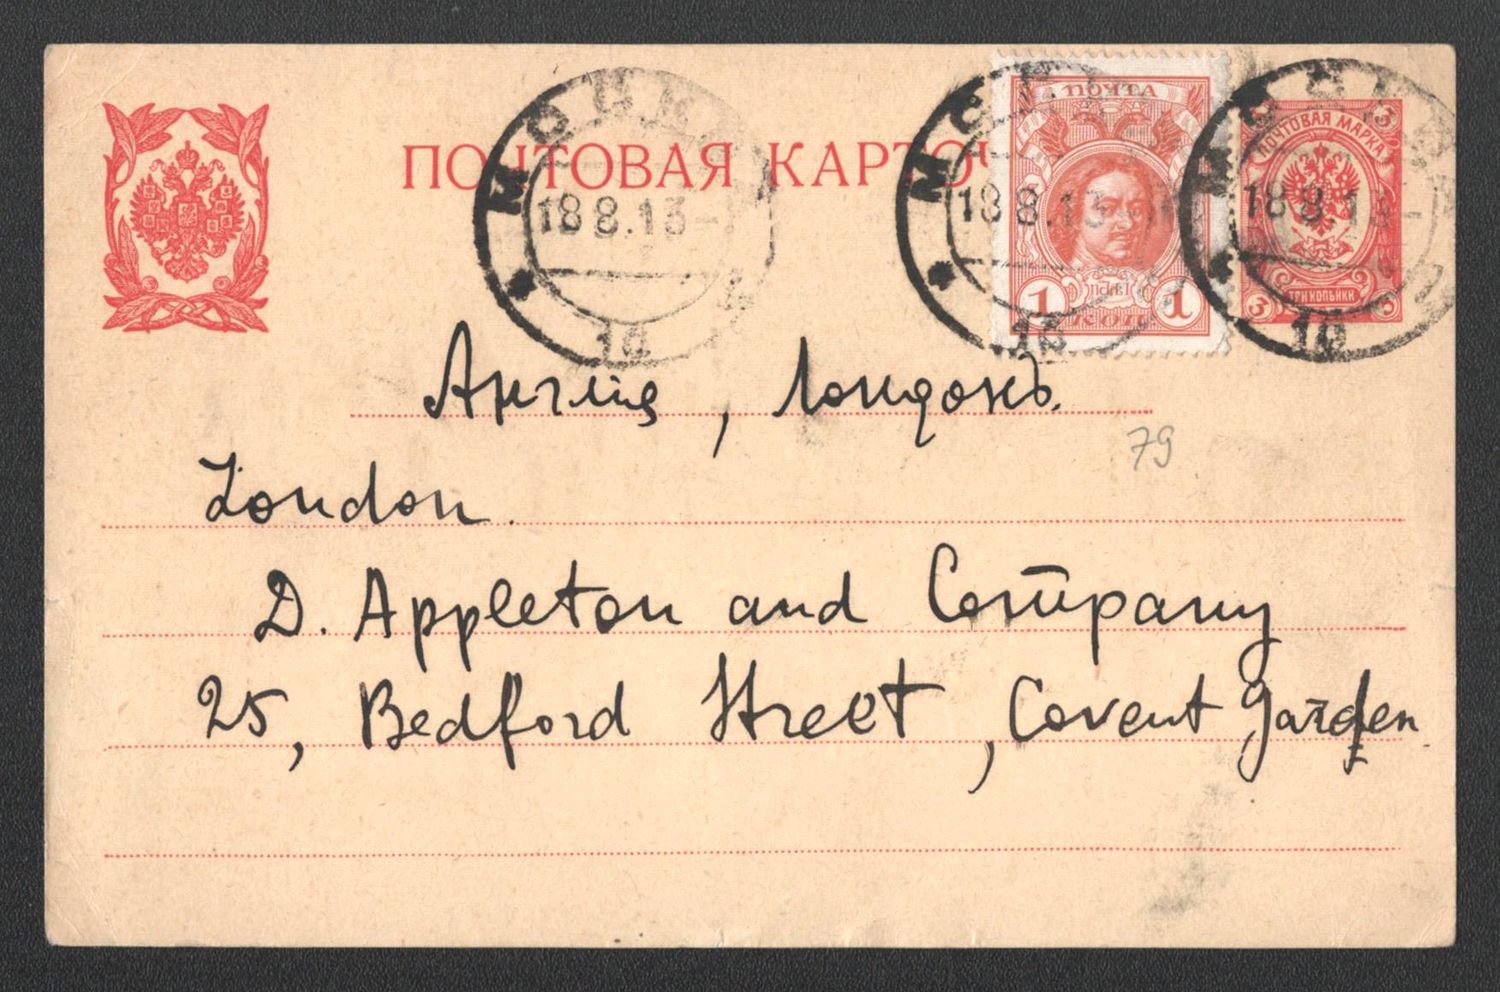 ПОЧТОВАЯ КАРТОЧ
МОСКВА
18 8.13
ПОЧТА
1 1
КОП
МОСКВА
18 8.13
ПОЧТОВАЯ МАРКА
3 3
ТРИ КОПѢЙКИ
МОСКВА
18 8.13
Англія, Лондонъ.
79
London.
D. Appleton and Company
25, Bedford Street, Covent Garden